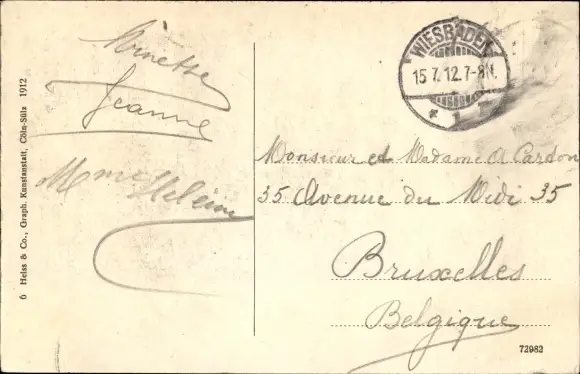 Ninette
Jeanne
Mme Hélène
6 Heiss & Co., Graph. Kunstanstalt, Cöln-Sülz 1912
WIESBADEN
15.7.12.7-8N.
* 1
Monsieur et Madame A Cardon
35 Avenue du Midi 35
Bruxelles
Belgique
72982